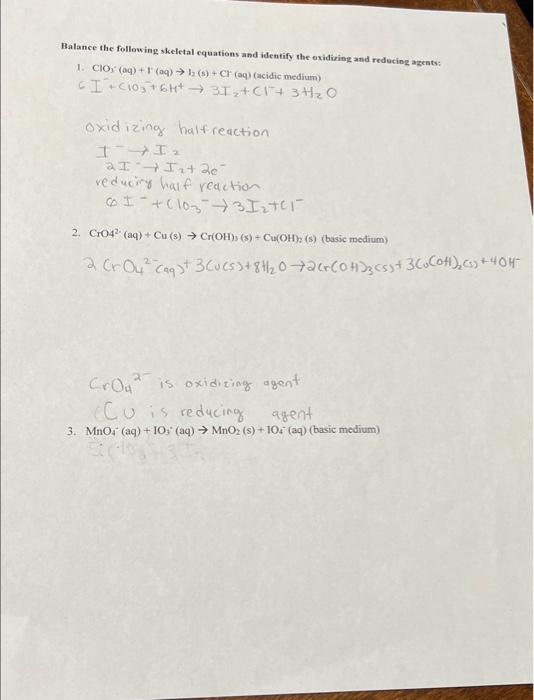 Balance the following skeletal equations and identify the oxidizing and reducing agents:
1. ClO₃⁻ (aq) + I⁻ (aq) → I₂ (s) + Cl⁻ (aq) (acidic medium)
6 I⁻ + ClO₃⁻ + 6H⁺ → 3I₂ + Cl⁻ + 3H₂O
oxidizing half reaction
I⁻ → I₂
2I⁻ → I₂ + 2e⁻
reducing half reaction
6 I⁻ + ClO₃⁻ → 3I₂ + Cl⁻
2. CrO4²⁻ (aq) + Cu (s) → Cr(OH)₃ (s) + Cu(OH)₂ (s) (basic medium)
2 CrO₄²⁻(aq) + 3Cu(s) + 8H₂O → 2Cr(OH)₃(s) + 3Cu(OH)₂(s) + 4OH⁻
CrO₄²⁻ is oxidizing agent
Cu is reducing agent
3. MnO₄⁻ (aq) + IO₃⁻ (aq) → MnO₂ (s) + IO₄⁻ (aq) (basic medium)